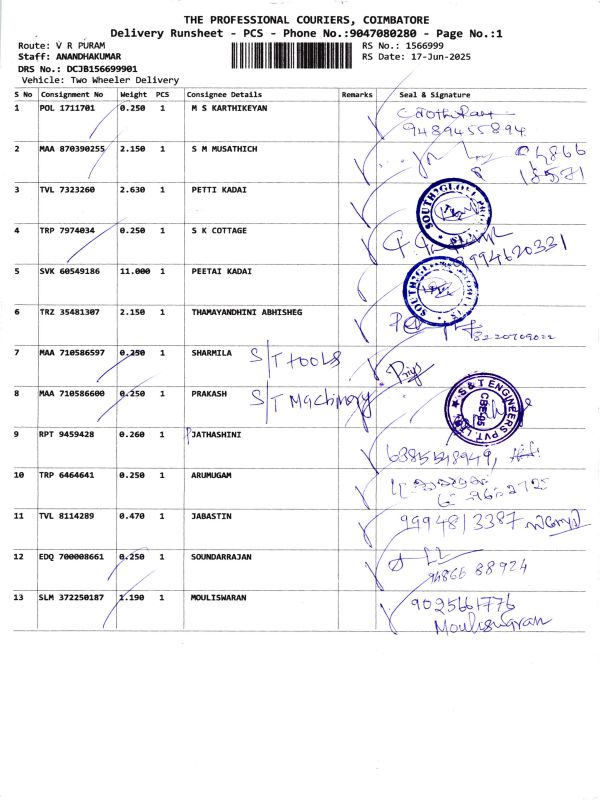 THE PROFESSIONAL COURIERS, COIMBATORE
Delivery Runsheet - PCS - Phone No.:9047080280 - Page No.:1
Route: V R PURAM
RS No.: 1566999
Staff: ANANDHAKUMAR
RS Date: 17-Jun-2025
DRS No.: DCJB156699901
Vehicle: Two Wheeler Delivery
S No Consignment No Weight PCS Consignee Details Remarks Seal & Signature
1 POL 1711701 0.250 1 M S KARTHIKEYAN
9489455894
2 MAA 870390255 2.150 1 S M MUSATHICH
3 TVL 7323260 2.630 1 PETTI KADAI
4 TRP 7974034 0.250 1 S K COTTAGE
9994620331
5 SVK 60549186 11.000 1 PEETAI KADAI
6 TRZ 35481307 2.150 1 THAMAYANDHINI ABHISHEG
7 MAA 710586597 0.250 1 SHARMILA S/T tools Priya
8 MAA 710586600 0.250 1 PRAKASH S/T Machinery
S & T ENGINEERS PVT LTD
CBE-05
9 RPT 9459428 0.260 1 JATHASHINI
6385548949,
10 TRP 6464641 0.250 1 ARUMUGAM
11 TVL 8114289 0.470 1 JABASTIN 9994813387
12 EDQ 700008661 0.250 1 SOUNDARRAJAN
94866 88924
13 SLM 372250187 1.190 1 MOULISWARAN 9025661776
Mouliswaran